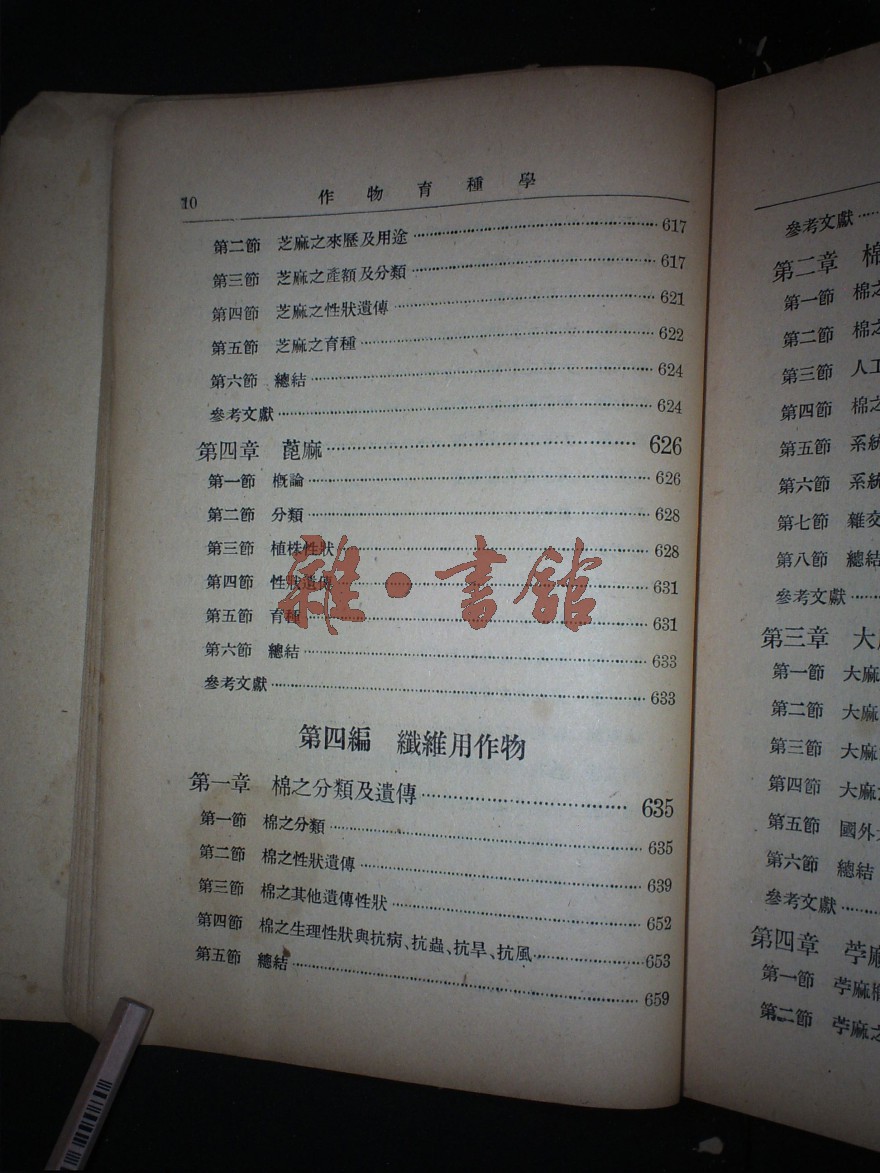 10 作物育種學
第二節 芝麻之來歷及用途 617
第三節 芝麻之產額及分類 617
第四節 芝麻之性狀遺傳 621
第五節 芝麻之育種 622
第六節 總結 624
參考文獻 624
第四章 蓖麻 626
第一節 概論 626
第二節 分類 628
第三節 植株性狀 628
第四節 性狀遺傳 631
第五節 育種 631
第六節 總結 633
參考文獻 633
第四編 纖維用作物
第一章 棉之分類及遺傳 635
第一節 棉之分類 635
第二節 棉之性狀遺傳 639
第三節 棉之其他遺傳性狀 652
第四節 棉之生理性狀與抗病、抗蟲、抗旱、抗風 653
第五節 總結 659
雜·書館
參考文獻
第二章 棉
第一節 棉之
第二節 棉之
第三節 人工
第四節 棉之
第五節 系統
第六節 系統
第七節 雜交
第八節 總結
參考文獻
第三章 大麻
第一節 大麻
第二節 大麻
第三節 大麻
第四節 大麻
第五節 國外
第六節 總結
參考文獻
第四章 苧麻
第一節 苧麻
第二節 苧麻之